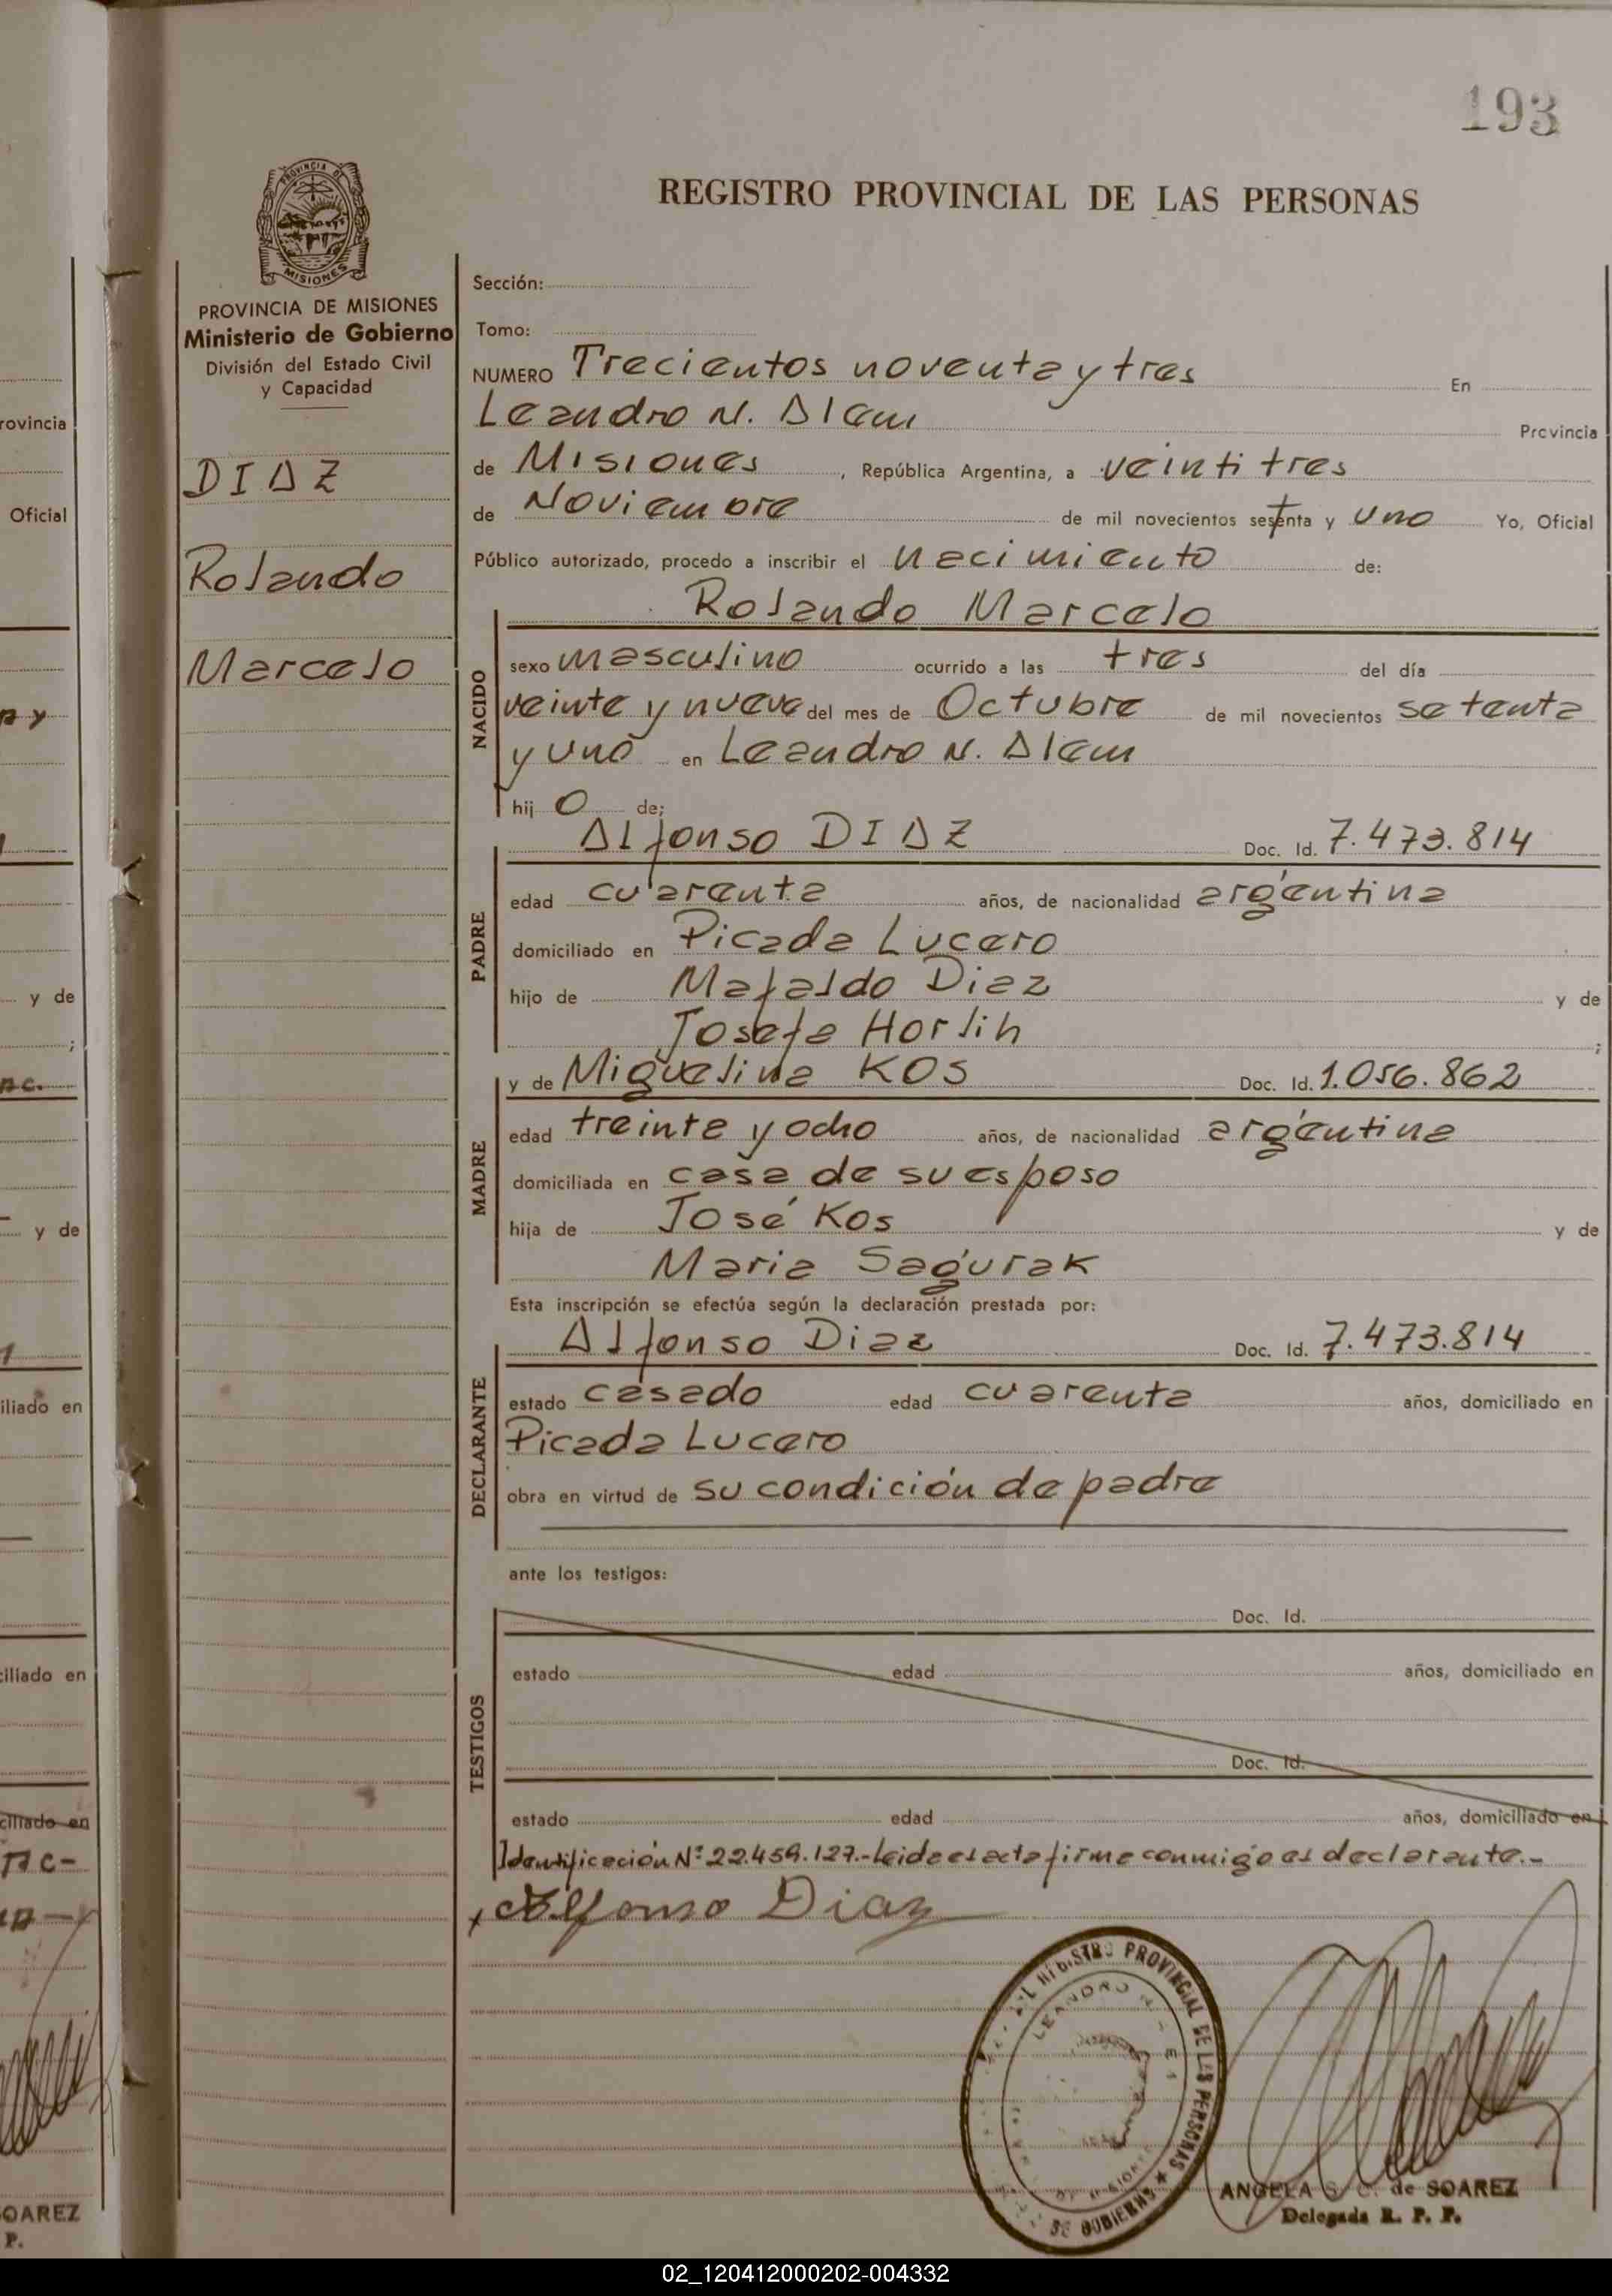 193
REGISTRO PROVINCIAL DE LAS PERSONAS
PROVINCIA DE
MISIONES
PROVINCIA DE MISIONES
Ministerio de Gobierno
División del Estado Civil
y Capacidad
DIAZ
Rolando
Marcelo
Sección:
Tomo:
NUMERO Trecientos noventa y tres En
Leandro N. Alem Provincia
de Misiones, República Argentina, a veintitres
de Noviembre de mil novecientos setenta y uno Yo, Oficial
Público autorizado, procedo a inscribir el nacimiento de:
Rolando Marcelo
NACIDO
sexo masculino ocurrido a las tres del día
veinte y nueve del mes de Octubre de mil novecientos setenta
y uno en Leandro N. Alem
hij o de;
Alfonso DIAZ Doc. Id. 7.473.814
PADRE
edad cuarenta años, de nacionalidad argentina
domiciliado en Picada Lucero
hijo de Mafaldo Diaz y de
Josefa Horlin ;
y de Miguelina KOS Doc. Id. 1.056.862
MADRE
edad treinta y ocho años, de nacionalidad argentina
domiciliada en casa de su esposo
hija de José Kos y de
Maria Sagurak
Esta inscripción se efectúa según la declaración prestada por:
Alfonso Diaz Doc. Id. 7.473.814
DECLARANTE
estado casado edad cuarenta años, domiciliado en
Picada Lucero
obra en virtud de su condición de padre
ante los testigos:
TESTIGOS
Doc. Id.
estado edad años, domiciliado en
Doc. Id.
estado edad años, domiciliado en
Identificación Nº 22.459.127.- Leida el acta firma conmigo el declarante.-
x Alfonso Diaz
REGISTRO PROVINCIAL DE LAS PERSONAS
LEANDRO N.
DE GOBIERNO
ANGELA S. C. de SOAREZ
Delegada R. P. P.
rovincia
Oficial
y de
y de
iliado en
ciliado en
ciliado en
OAREZ
P.
02_120412000202-004332